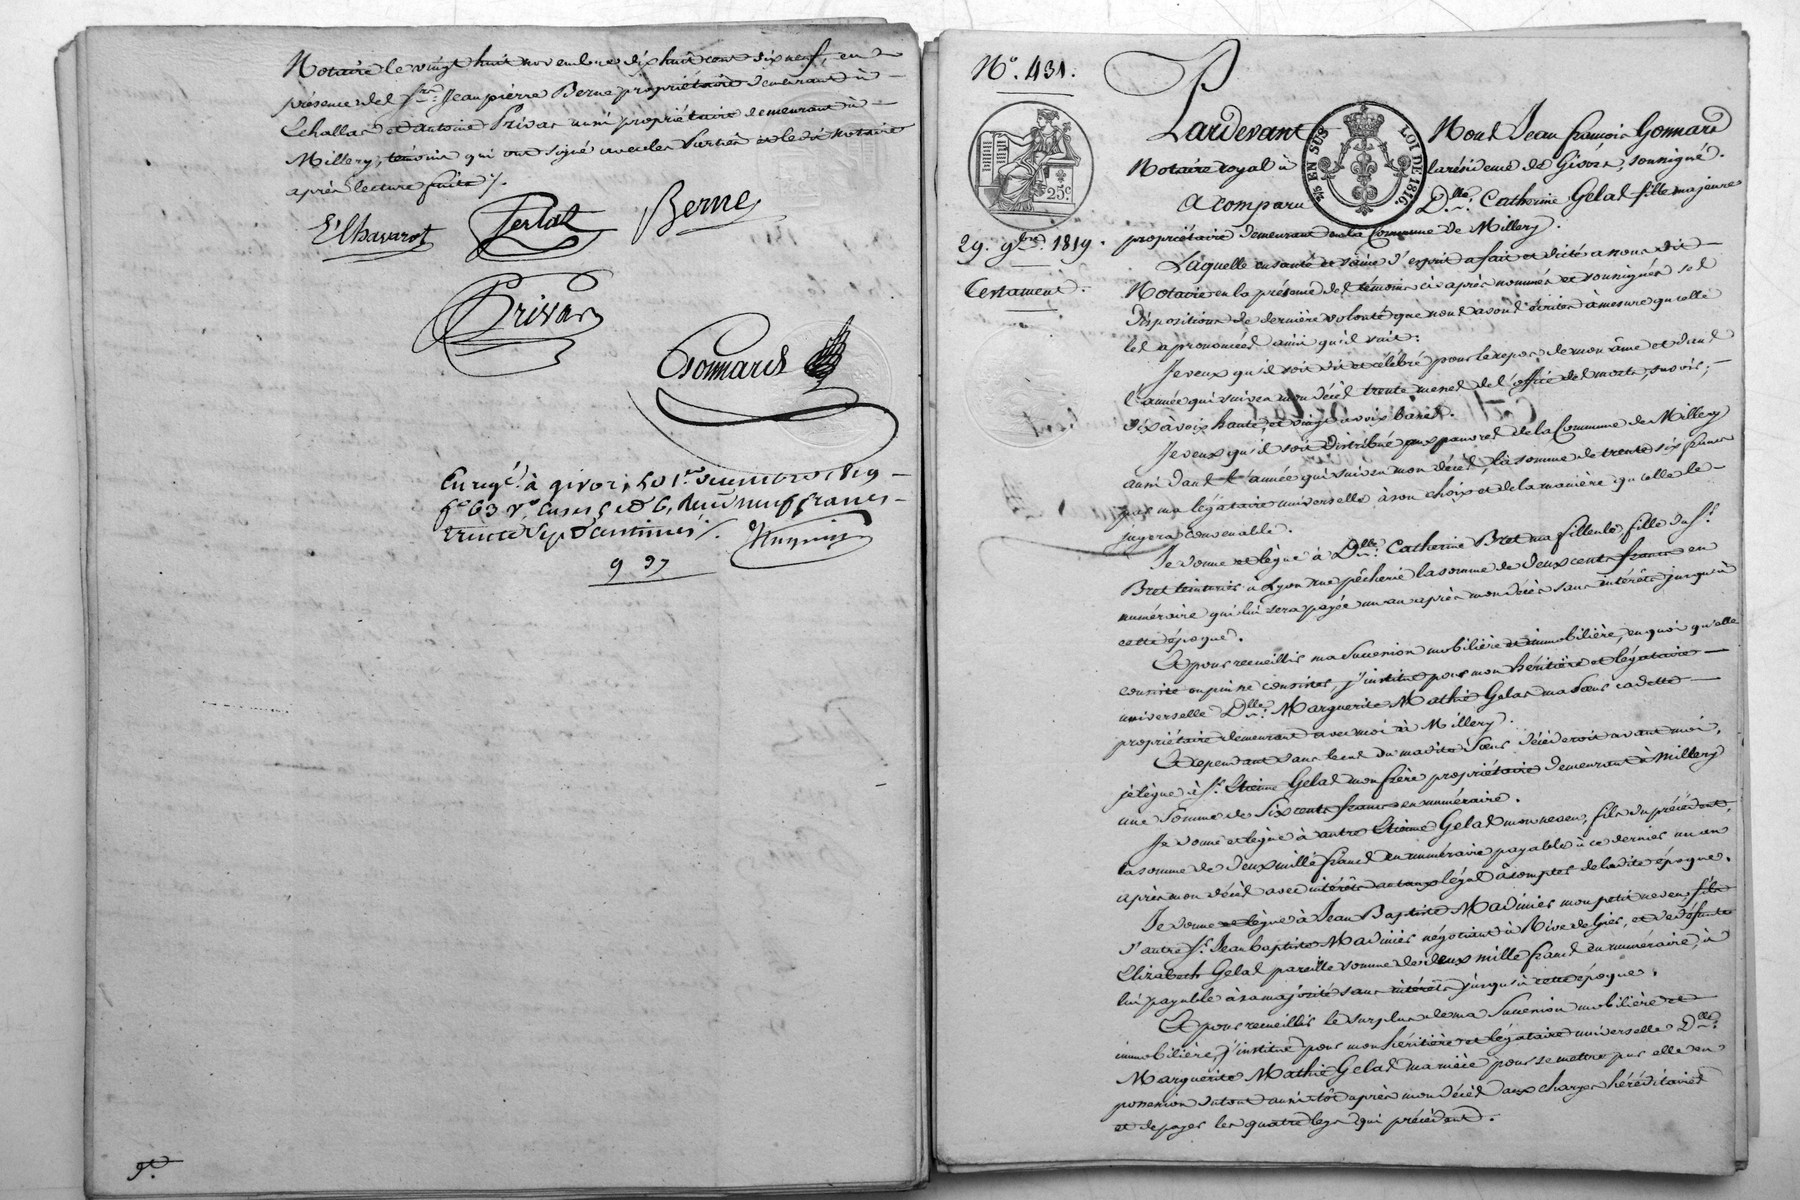 Notaire le vingt huit novembre dix huit cent dix neuf, en
présence de s.rs Jean pierre Berne propriétaire demeurant à
Echallas et Antoine Privas aussi propriétaire demeurant à
Millery, témoins qui ont signé avec les Parties et le dt Notaire
après lecture faite ./.
E Chavarot
Berne
Privas
Gonnard
Enregé. à givors, le 1er decembre 1819
fo 63 vo, cases 5 et 6, Reçu neuf francs
trente sept centimes ./.
9 37
No. 431.
Pardevant Nous Jean françois Gonnard
Notaire royal à la résidence de Givors, soussigné.
A comparu Dlle. Catherine Gelas fille majeure
propriétaire demeurant en la Commune de Millery.
EN SUS
LOI DE 1816.
25.c
29. 9bre. 1819.
Testament.
Laquelle en santé et saine d'esprit a fait et dicté a nous dit
Notaire en la présence des témoins ci après nommés et soussignés ses
dispositions de dernière volonté que nous avons écrites à mesure qu'elle
les a prononcées ainsi qu'il suit:
Je veux qu'il soit dit et célébré pour le repos de mon âme et dans
l'année qui suivra mon décès trente messes de l'office des morts, savoir;
dix à voix haute, et vingt à voix basse.
Je veux qu'il soit distribué aux pauvres de la Commune de Millery
aussi dans l'année qui suivra mon décès, la somme de trente six francs
par ma légataire universelle à son choix et de la manière qu'elle le
jugera convenable.
Je donne et lègue à Dlle. Catherine Bret ma filleule, fille du sr.
Bret teinturier à Lyon rue pêcherie la somme de deux cents francs en
numéraire qui lui sera payée un an après mon décès sans intérêts jusqu'à
cette époque.
Et pour recueillir ma Succession mobilière et immobilière, en quoi qu'elle
consiste ou puisse consister, j'institue pour mon héritière et légataire
universelle Dlle. Marguerite Mathié Gelas ma sœur cadette
propriétaire demeurant avec moi à Millery.
Et cependant dans le cas où madite Sœur décéderoit avant moi,
je lègue à sr. Etienne Gelas mon frère propriétaire demeurant à Millery
une Somme de Six cents francs en numéraire.
Je donne et lègue à autre Etienne Gelas mon neveu, fils du précédent,
la somme de deux mille francs en numéraire payable à ce dernier un an
après mon décès avec intérêts au taux légal à compter de ladite époque.
Je donne et lègue à Jean Baptiste Madinier mon petit neveu, fils
d'autre sr. Jean baptiste Madinier négociant à Rive de Gier, et de défunte
Elizabeth Gelas pareille somme de deux mille francs en numéraire, à
lui payable à sa majorité sans intérêts jusqu'à cette époque.
Et pour recueillir le surplus de ma Succession mobilière et
immobilière, j'institue pour mon héritière et légataire universelle Dlle.
Marguerite Mathié Gelas ma nièce pour se mettre par elle en
possession du tout aussitôt après mon décès aux charges héréditaires
et de payer les quatre legs qui précèdent.